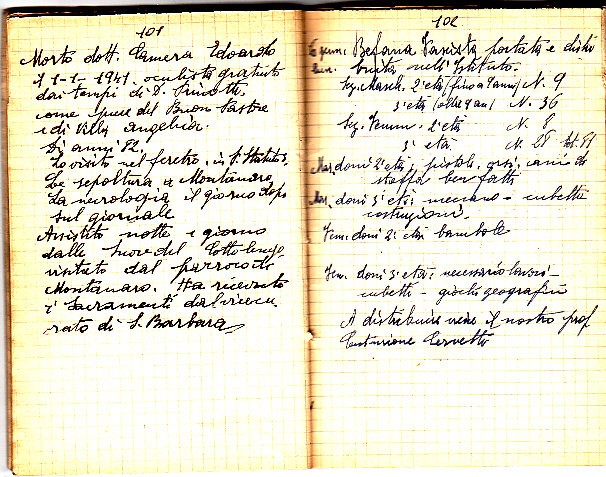 101
Morto dott. Camera Edoardo
il 1-1-1941. oculista gratuito
dai tempi di D.
come pure del Buon Pastore
e di Villa Angelica.
Di anni 82.
Lo visito nel feretro, in S.
La sepoltura a Montanaro
La necrologia il giorno dopo
sul giornale
Assistito notte e giorno
dalle suore del Cottolengo
visitato dal parroco di
Montanaro. Ha ricevuto
i Sacramenti dal vicecu
rato di S. Barbara
102
Befana Fascista portata e distri
buita nell'Istituto.
Sez. Masch. 2ª età (fino a 9 anni) N. 9
3ª età (oltre 9 an) N. 36
Sez. Femm. 2ª età N. 8
3ª età N. 28 tot. 81
Mas. doni 2ª età, pistole, orsi, cani di
stoffa ben fatti
Mas. doni 3ª età: meccano - cubetti
costruzioni.
Fem. doni 2ª età bambole
Fem. doni 3ª età, necessario lavori -
cubetti - giochi geografici
A distribuire viene il nostro prof
Cervetto